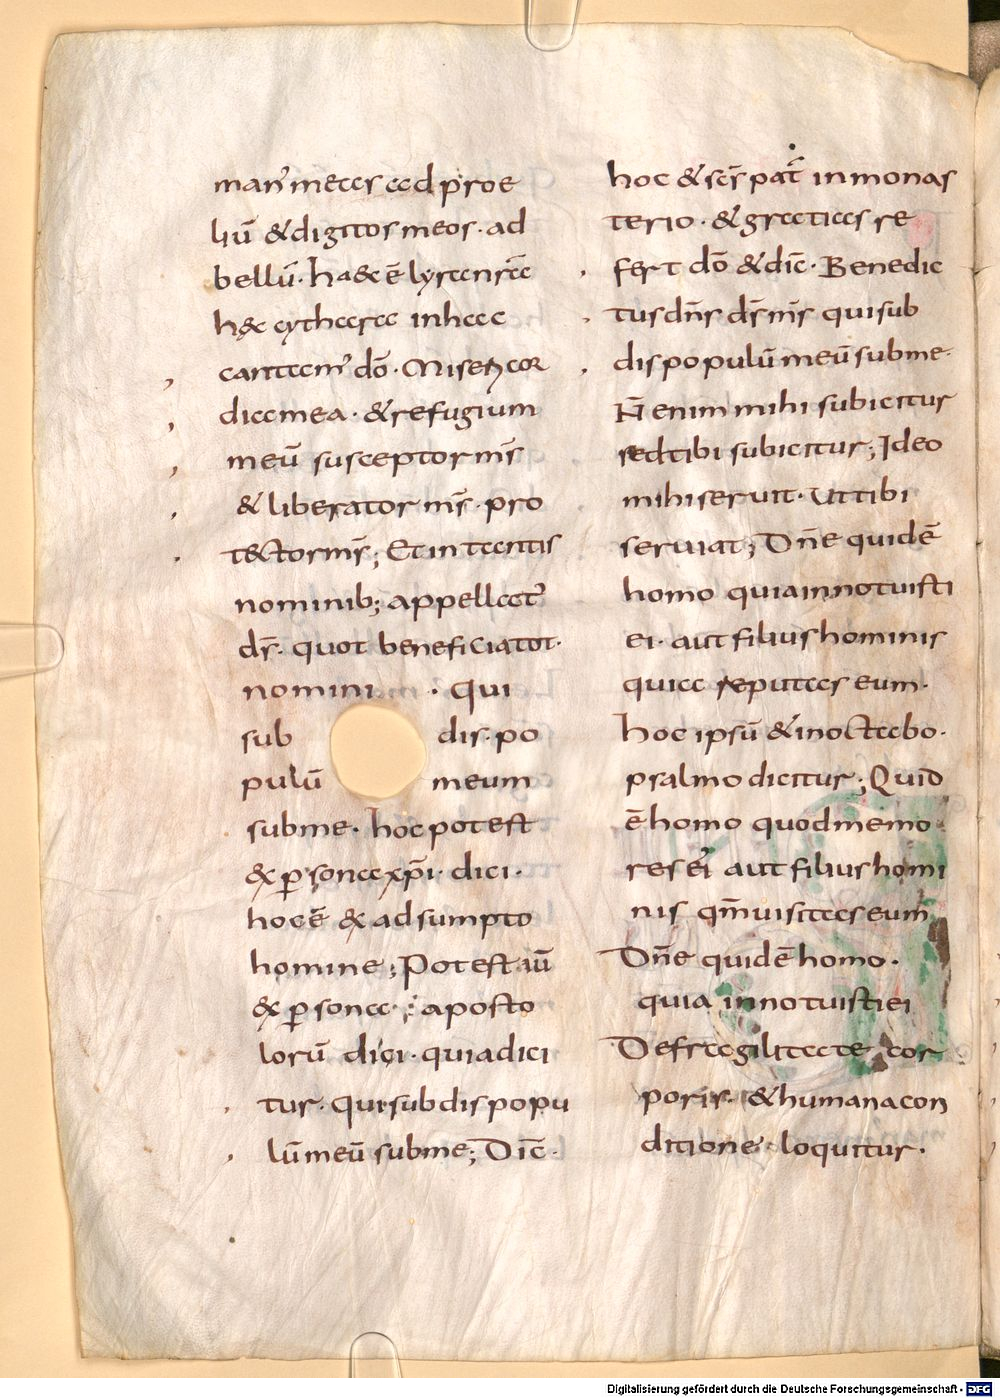 man' meas ad proe
liū & digitos meos· ad
bellū· ha&c ē lyra nr̄a
h&c cythara in hac
cantam' dō· Miserico
dia mea· & refugium
meū susceptor m̄s
& liberator m̄s· pro
tector m̄s; Et in tantis
nominib; appellat'
ds̄· quot beneficia tot·
nomini · qui
sub dis· po
pulū meum
sub me· hoc potest
ex p̱sona xp̄i· dici·
hoc ē ex adsumpto
homine; Potest iū
ex p̱sona· aposto
lorū dici· quia dici
tur· Qui subdis popu
lū meū sub me; Dic̄·
hoc & sc̄s pat̄ in monas
terio· & gratias re
fert dō & dic̄· Benedic
tus dn̄s ds̄ m̄s qui sub
dis populū meū sub me·
N̄ enim mihi subicitur
sed tibi subicitur; Ideo
mihi seruit· ut tibi
seruiat; Dn̄e quid ē
homo quia innotuisti
ei· aut filius hominis
quia reputas eum·
hoc ipsū & in octabo·
psalmo dicitur; Quid
ē homo quod memo
res ei aut filius homi
nis qm̄ uisitas eum
Dn̄e quid ē homo·
quia innotuisti ei
De fragilitate cor
poris· & humana con
ditione· loquitur·
Digitalisierung gefördert durch die Deutsche Forschungsgemeinschaft - DFG